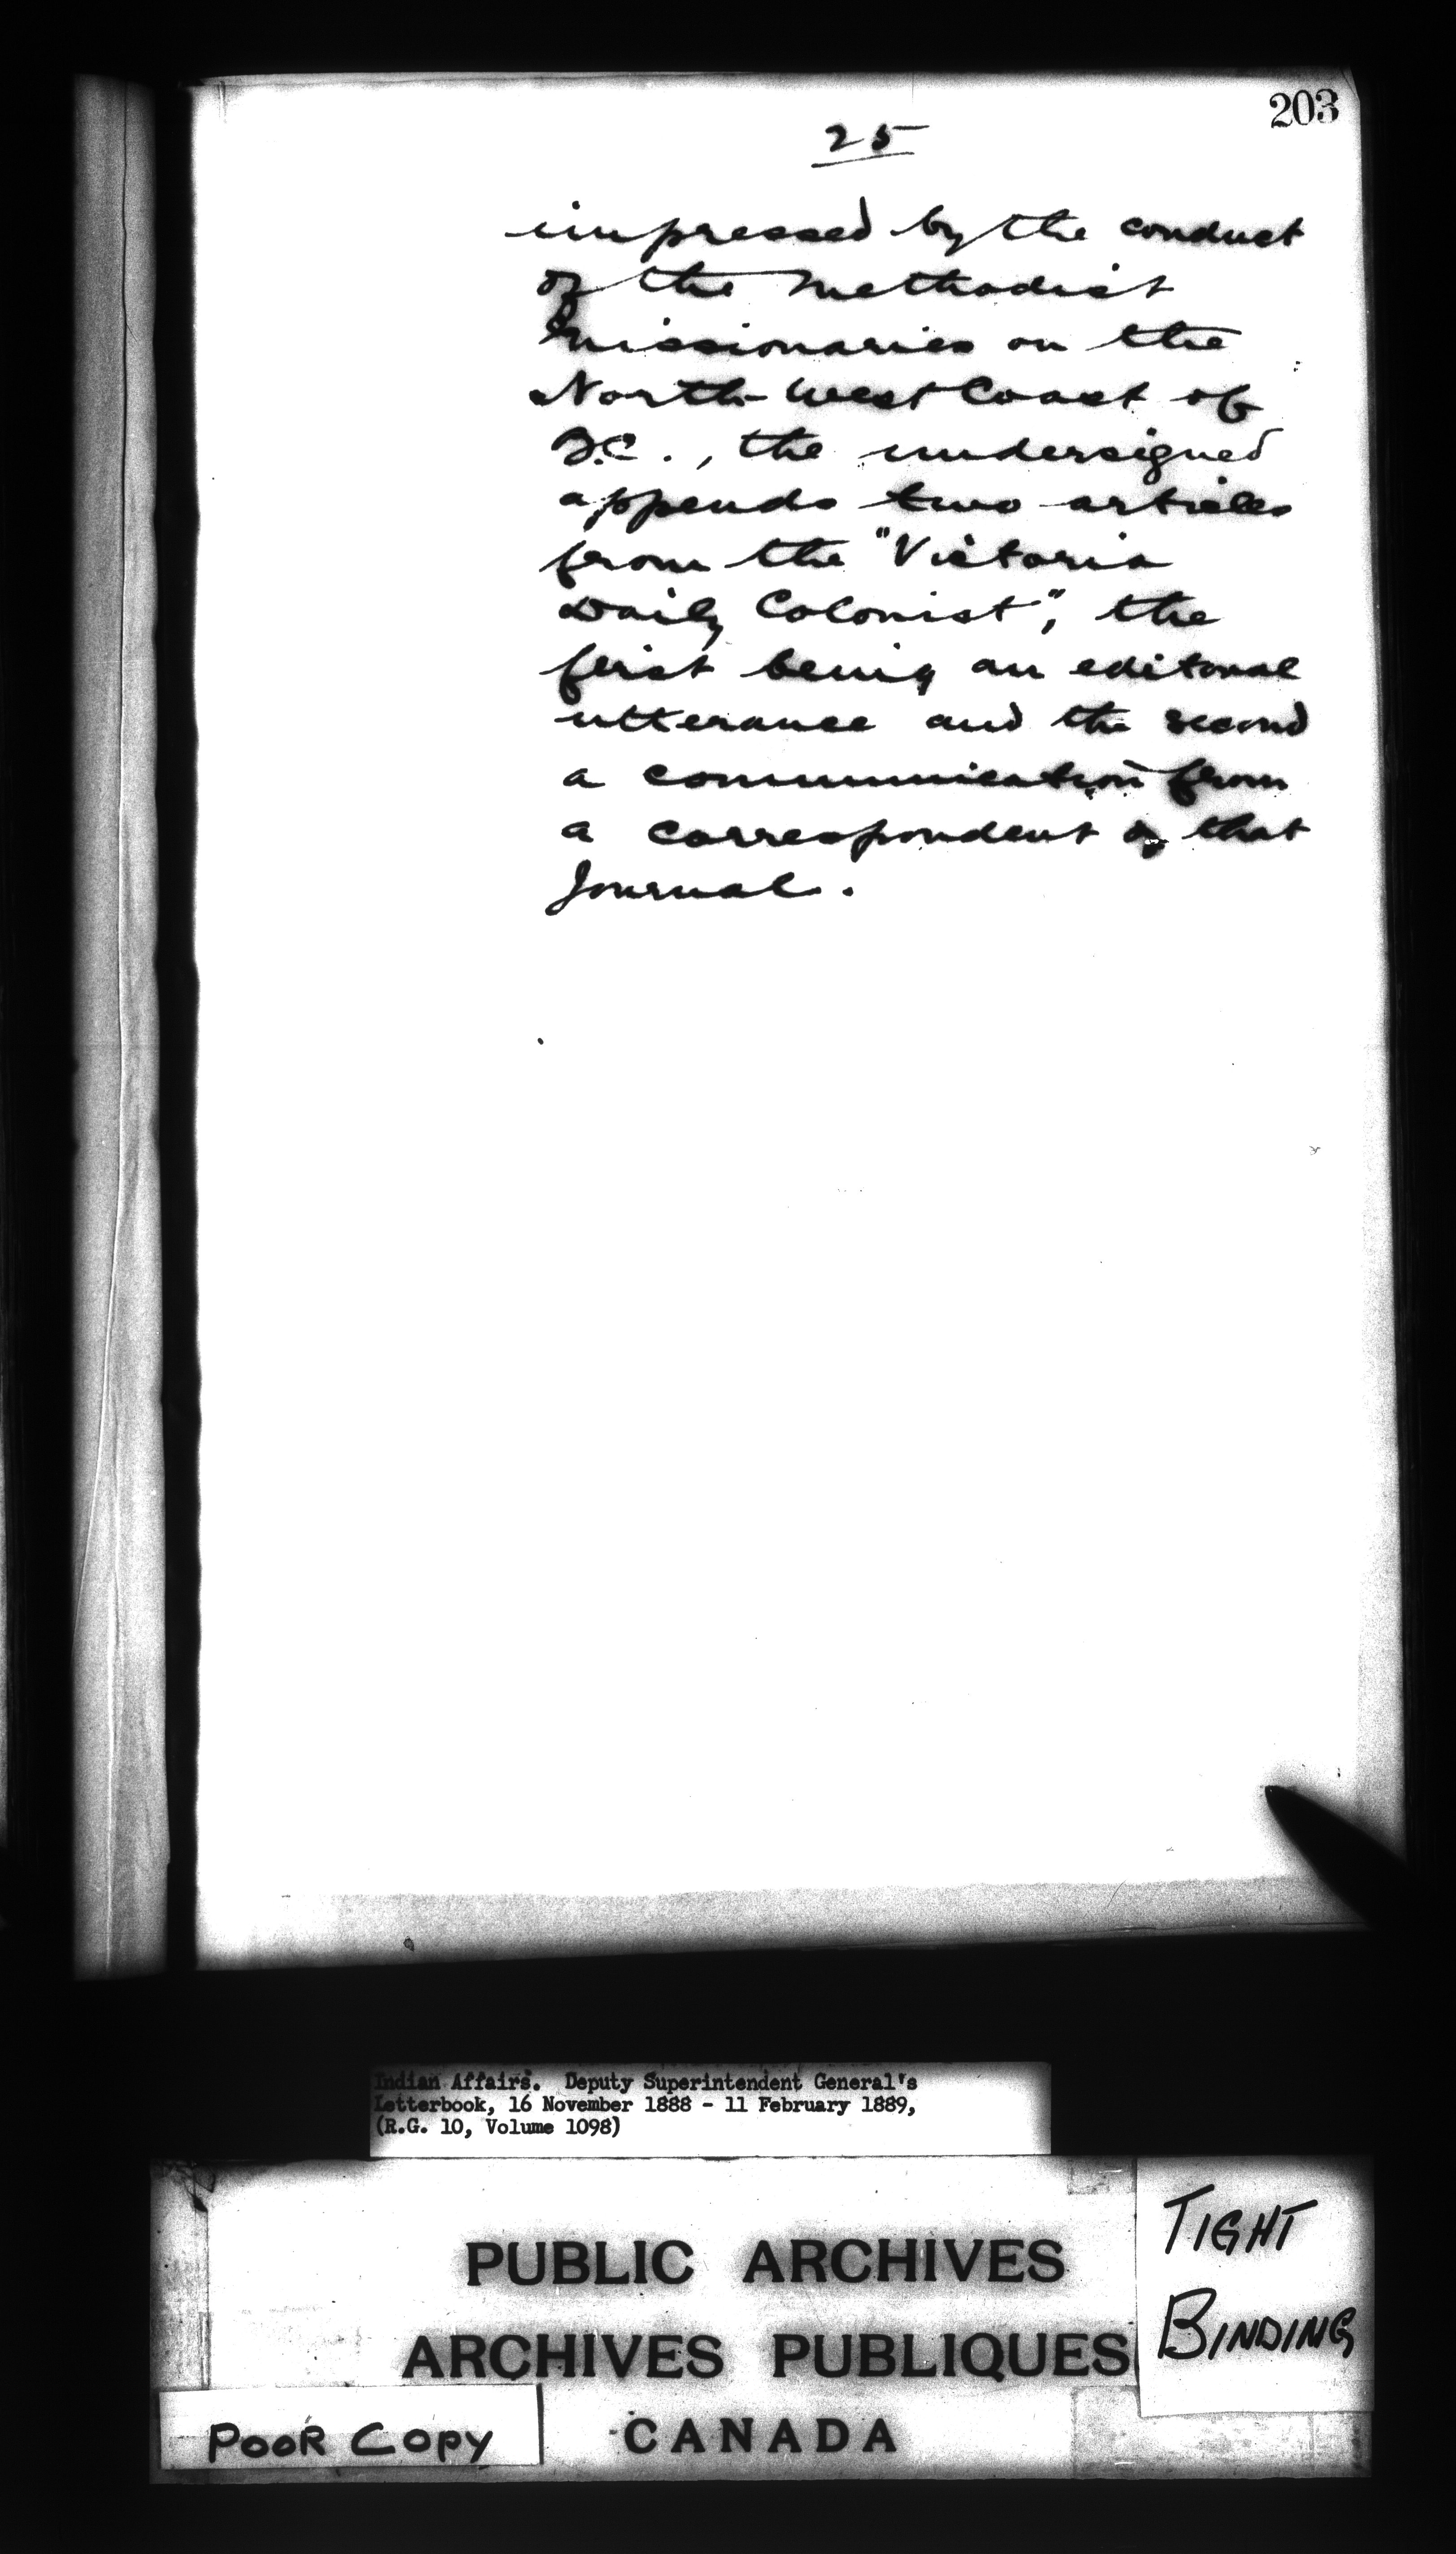 203
25
impressed by the conduct
of the Methodist
Missionaries on the
North-West Coast of
B.C., the undersigned
appends two articles
from the "Victoria
Daily Colonist", the
first being an editorial
utterance and the second
a communication from
a correspondent of that
Journal.
Indian Affairs. Deputy Superintendent General's
Letterbook, 16 November 1888 - 11 February 1889,
(R.G. 10, Volume 1098)
PUBLIC ARCHIVES
ARCHIVES PUBLIQUES
CANADA
TIGHT
BINDING
POOR COPY